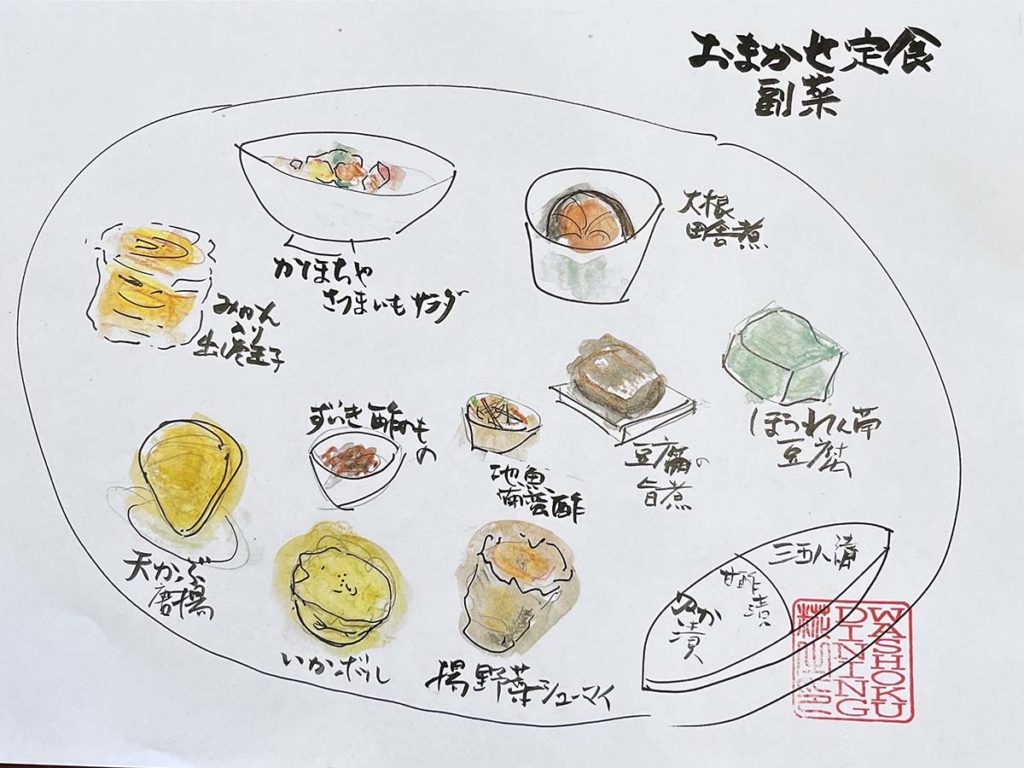 おまかせ定食
副菜
かぼちゃ
さつまいもサラダ
大根
田舎煮
みかん
入り
出し巻玉子
ずいき酢のもの
地魚
南蛮酢
豆腐の
旨煮
ほうれん草
豆腐
天かぶ
揚野菜シューマイ
三五八漬
甘酢漬
ぬか漬
WASHOKU
DINING